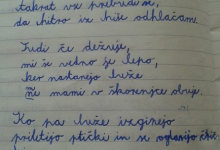 takrat vse prebudi se,
da hitro iz hiše odhlačam.
Tudi če dežuje,
mi je vedno je lepo,
ker nastanejo luže
mami v škorenjce obuje.
Ko pa luže izginejo
priletijo ptički in se oglasijo